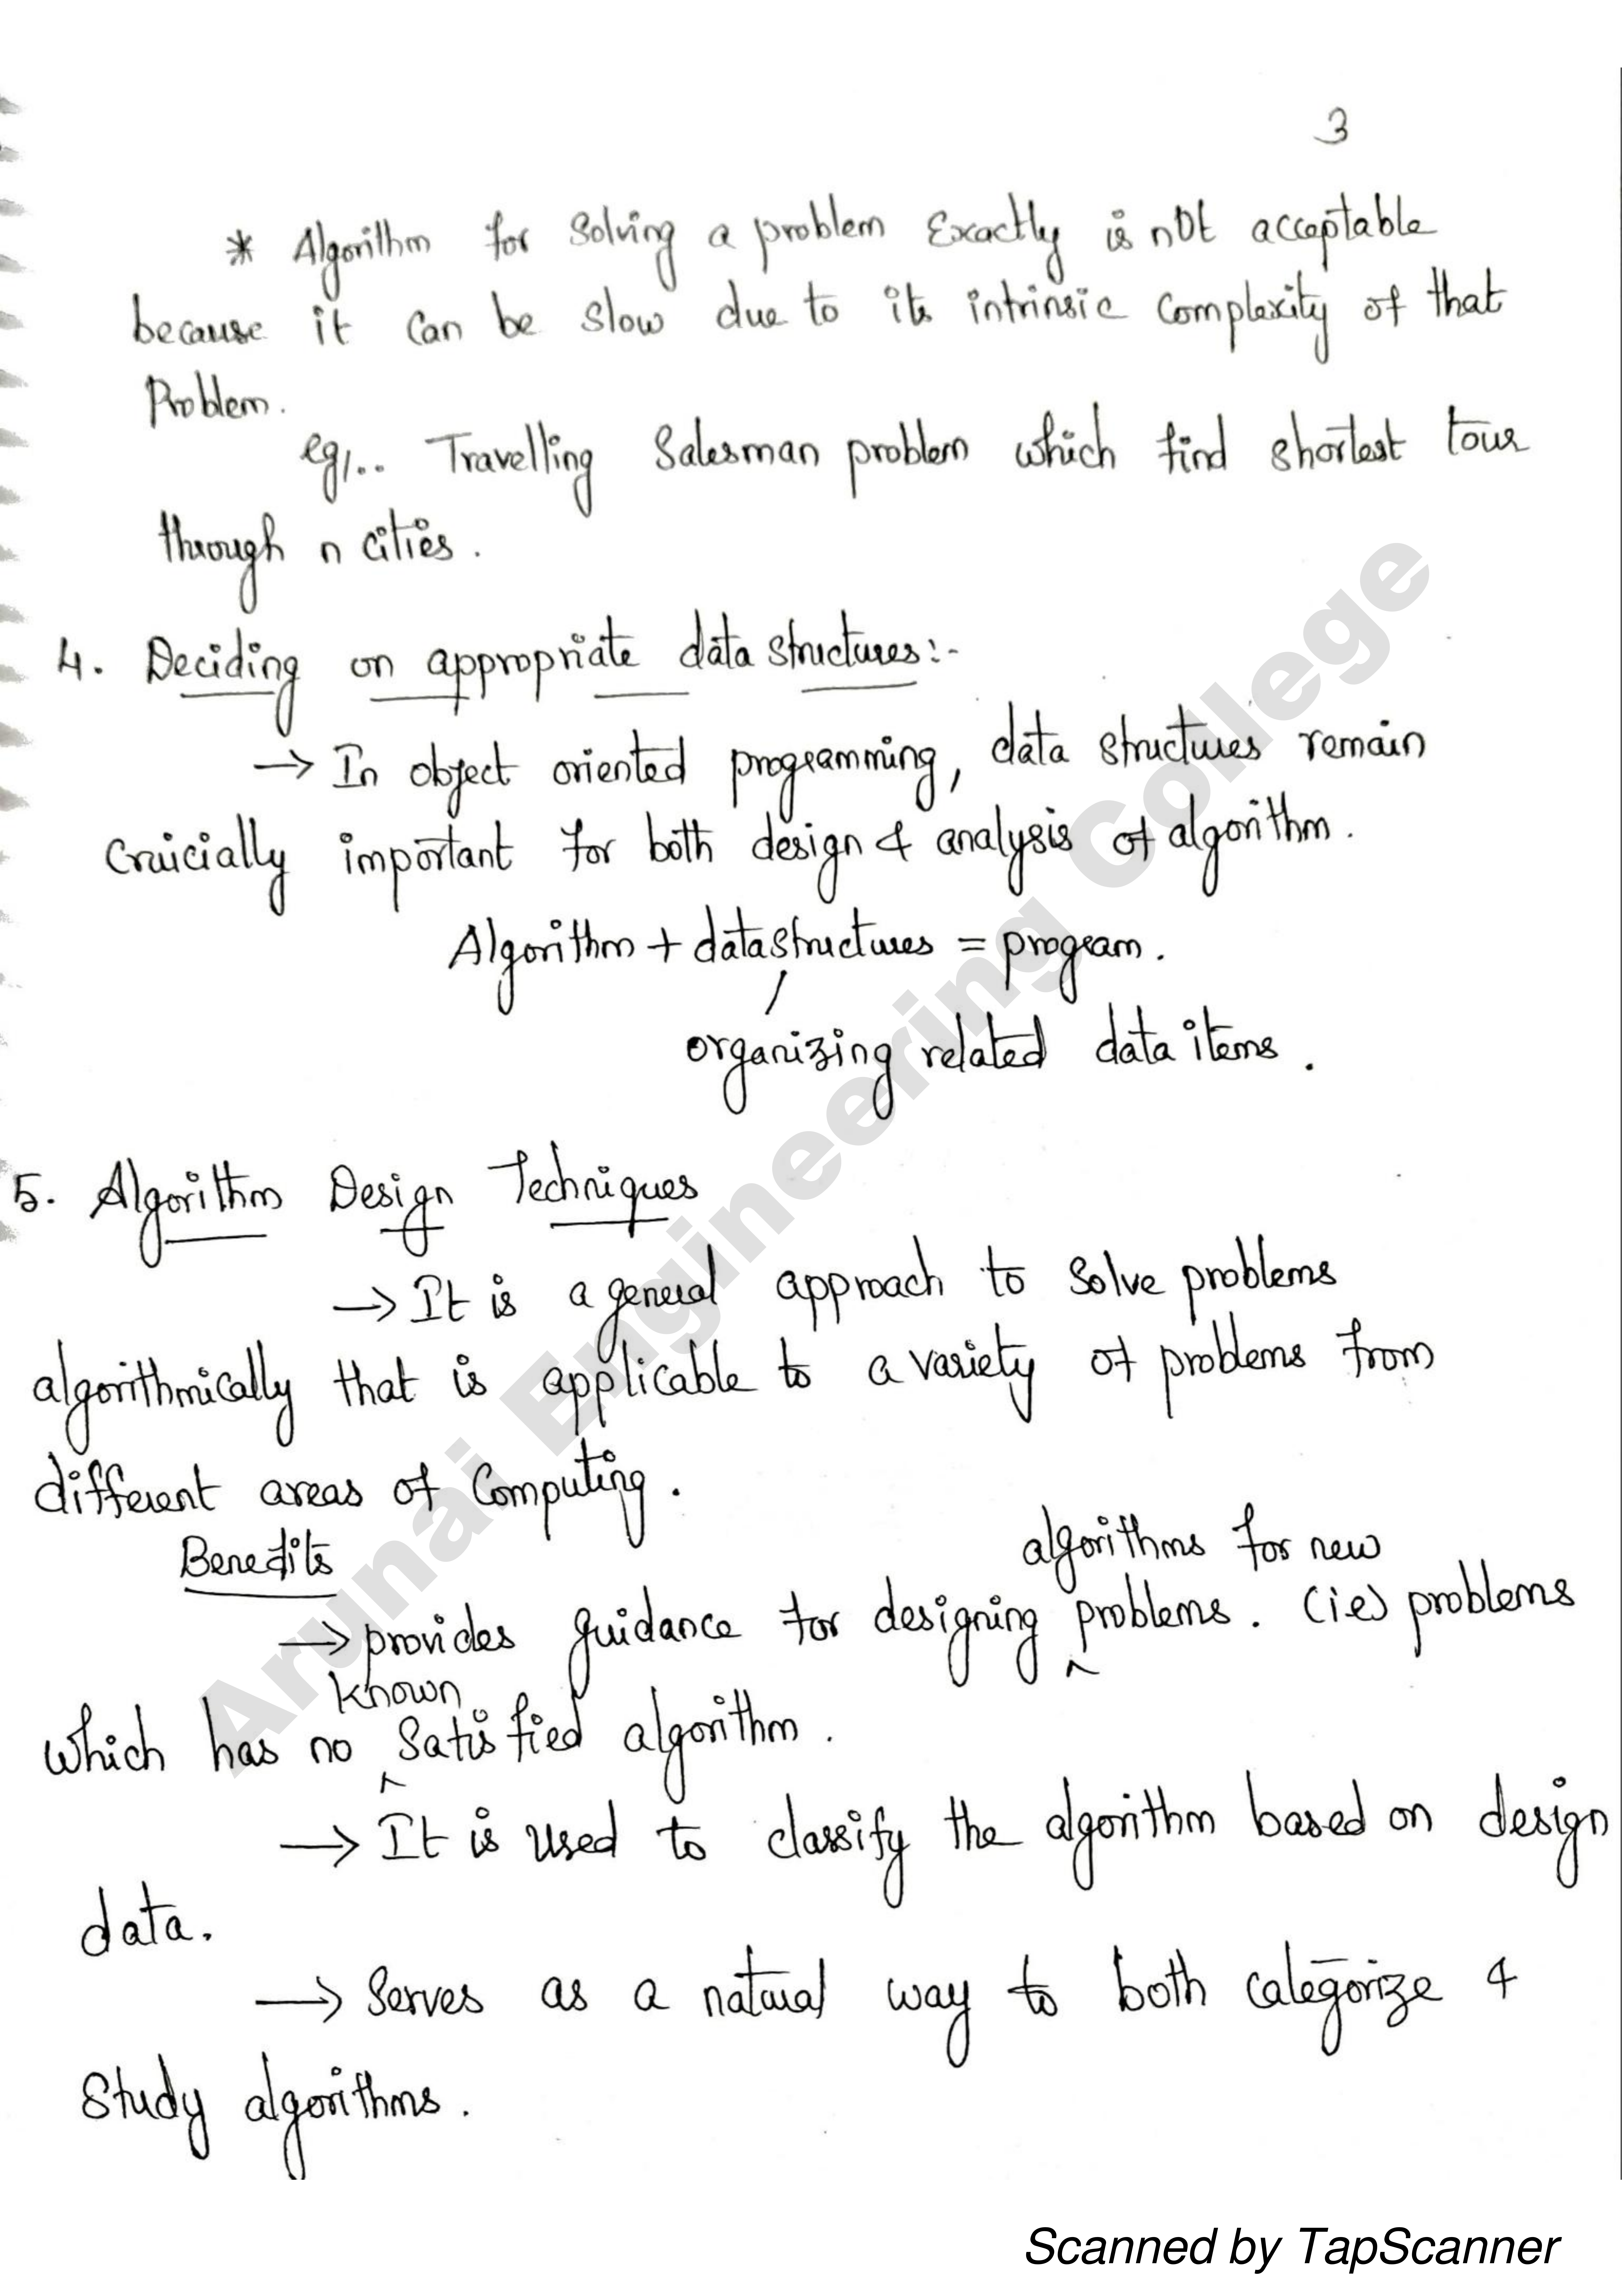 3
* Algorithm for solving a problem Exactly is not acceptable
because it can be slow due to its intrinsic complexity of that
Problem.
eg,.. Travelling Salesman problem which find shortest tour
through n cities.
4. Deciding on appropriate data structures:-
→ In object oriented programming, data structures remain
Cruicially important for both design & analysis of algorithm.
Algorithm + datastructures = program.
/
organizing related data items.
5. Algorithm Design Techniques
→ It is a general approach to solve problems
algorithmically that is applicable to a variety of problems from
different areas of Computing.
Benefits
algorithms for new
→ provides guidance for designing ^ problems. (ie) problems
known
which has no ^ Satisfied algorithm.
→ It is used to classify the algorithm based on design
data.
→ Serves as a natural way to both categorize &
Study algorithms.
Arunai Engineering College
Scanned by TapScanner